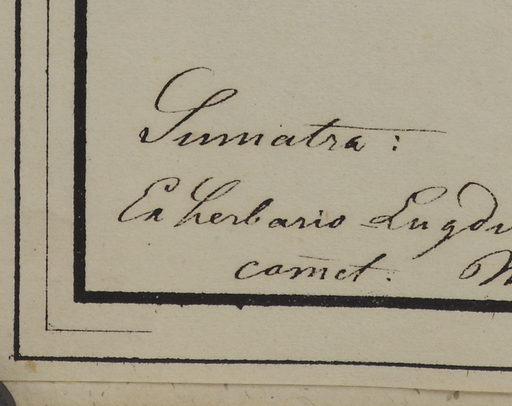 Sumatra:
Ex herbario Lugdu
comet. M